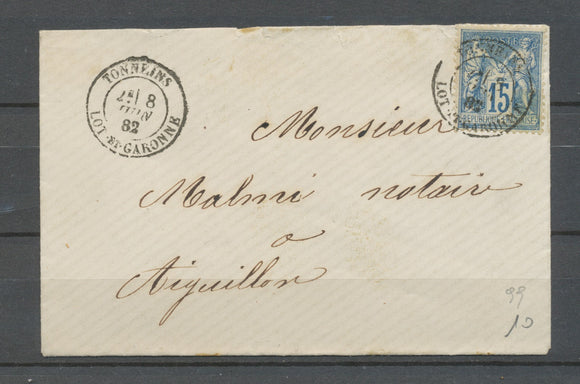 TONNEINS
8
JUIN
82
LOT-ET-GARONNE
15
REPUBLIQUE
Monsieur
Malmi notaire
a
Aiguillon
99
10